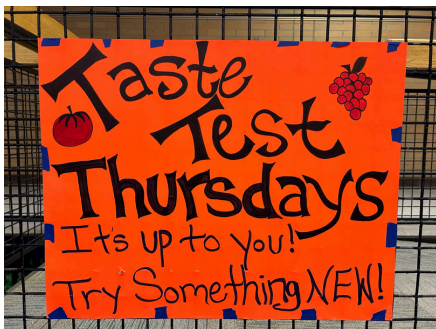 Taste
Test
Thursdays
It's up to you!
Try Something NEW!